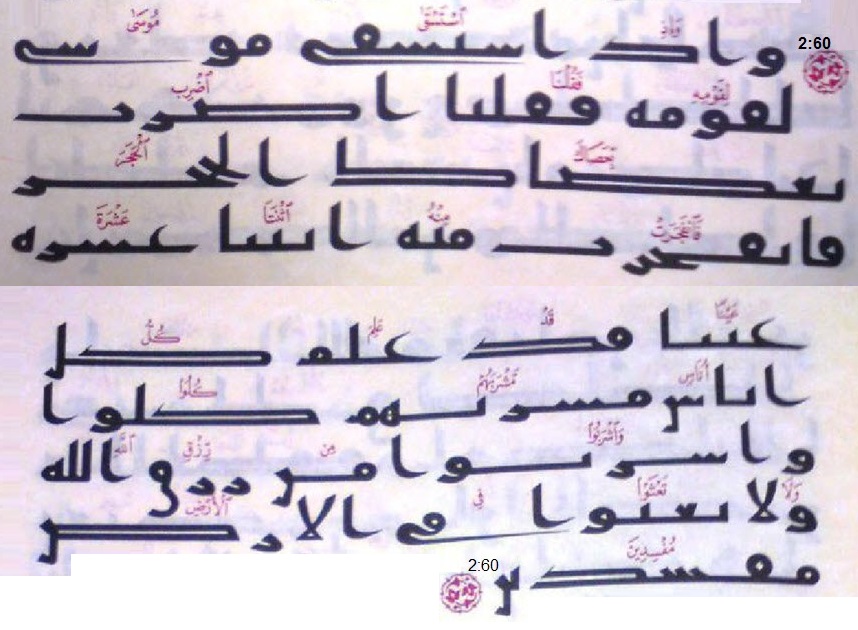 وَإِذِ ٱسْتَسْقَىٰ مُوسَىٰ
2:60
واذ استسقى موسى
لِقَوْمِهِ فَقُلْنَا ٱضْرِب
لقومه فقلنا اضرب
بِّعَصَاكَ ٱلْحَجَرَ
بعصاك الحجر
فَٱنفَجَرَتْ مِنْهُ ٱثْنَتَا عَشْرَةَ
فانفجرت منه اثنتا عشره
عَيْنًا قَدْ عَلِمَ كُلُّ
عينا قد علم كل
أُنَاسٍ مَّشْرَبَهُمْ كُلُوا
اناس مشربهم كلوا
وَٱشْرَبُوا مِن رِّزْقِ ٱللَّهِ
واشربوا من رزق الله
وَلَا تَعْثَوْا فِي ٱلْأَرْضِ
ولا تعثوا في الارض
مُفْسِدِينَ
مفسدين
2:60